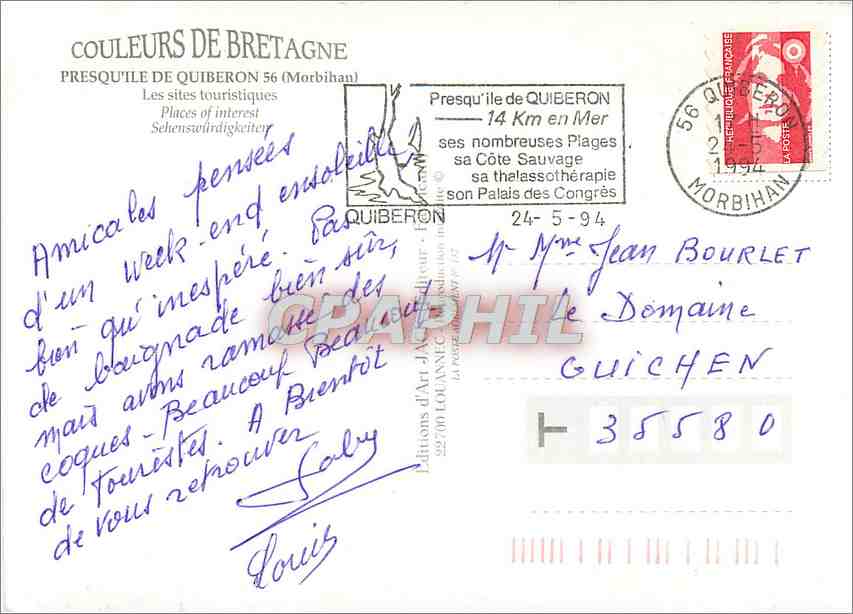 COULEURS DE BRETAGNE
PRESQU'ILE DE QUIBERON 56 (Morbihan)
Les sites touristiques
Places of interest
Sehenswürdigkeiten
Presqu'ile de QUIBERON
14 Km en Mer
ses nombreuses Plages
sa Côte Sauvage
sa thalassothérapie
son Palais des Congrès
QUIBERON
24-5-94
56 QUIBERON
1994
MORBIHAN
REPUBLIQUE FRANÇAISE
LA POSTE
Amicales pensées
d'un week-end ensoleillé,
bien qu'inespéré. Pas
de baignade bien sûr,
mais avons ramassé des
coques - Beaucoup Beaucoup
de Touristes. A Bientôt
de vous retrouver
Gaby
Louis
Editions d'Art JACK
22700 LOUANNEC
LA POSTE AGREMENT N°
CPAPHIL
M. Mme Jean BOURLET
Le Domaine
GUICHEN
T 35580